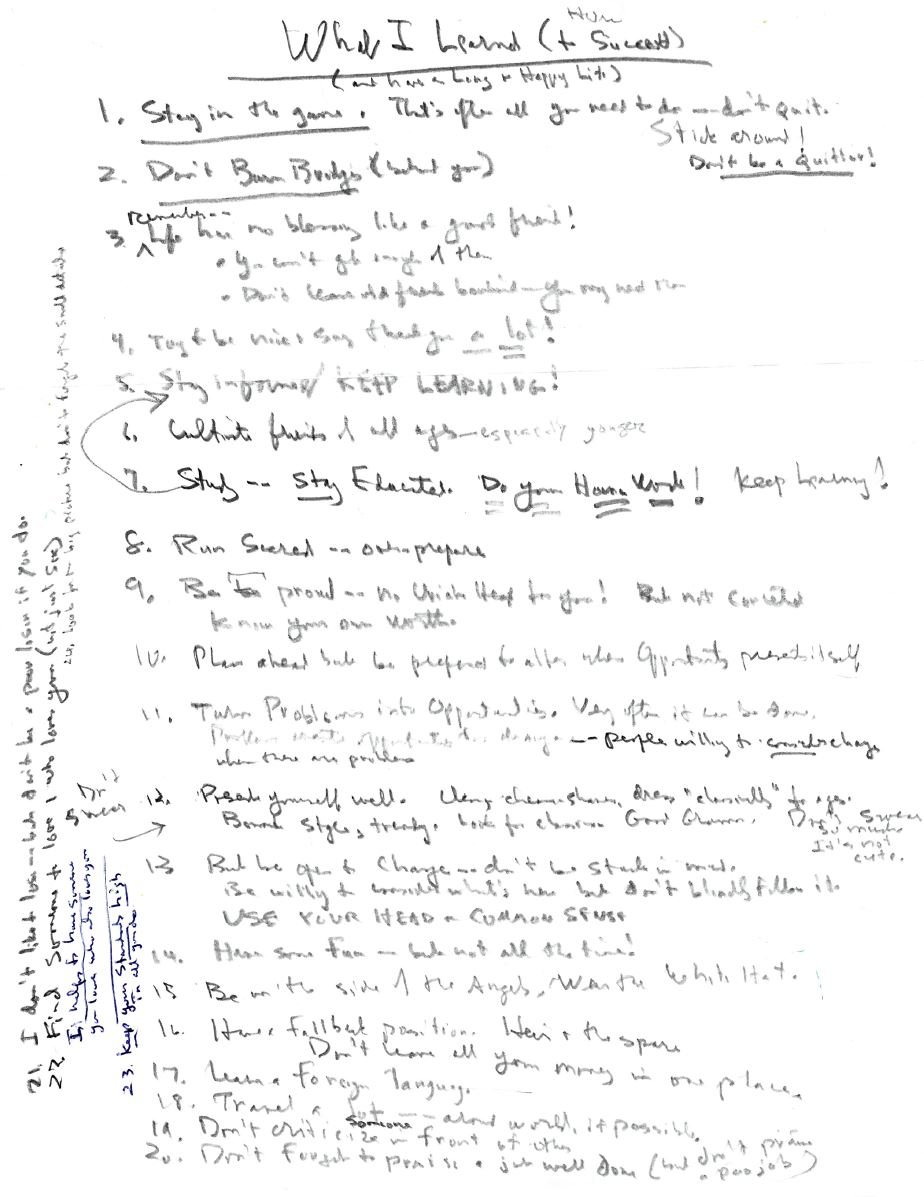 How
What I Learned (to Succeed)
(and have a Long & Happy Life)
1. Stay in the game. That's often all you need to do — don't quit.
Stick around!
Don't be a Quitter!
2. Don't Burn Bridges (behind you)
Remember --
3. Life has no blessing like a good friend!
• You can't get enough of them
• Don't leave old friends behind — you may need them
4. Try to be nice & say thank you a lot!
5. Stay informed / KEEP LEARNING!
6. Cultivate friends of all ages — especially younger
7. Study -- Stay Educated. Do your Home Work! Keep learning!
8. Run Scared -- over-prepare
9. Be proud -- no Uriah Heep for you! But not conceited
Know your own worth.
10. Plan ahead but be prepared to alter when Opportunity presents itself
11. Turn Problems into Opportunities. Very often it can be done.
Problems create opportunities for change -- people willing to consider change
when there are problems
12. Present yourself well. dress "classically" to age.
Beware styles, trendy. Look for Good Grammar.
Don't swear
so much
It's not
cute.
13 But be open to Change — don't be stuck in mud.
Be willing to consider what's new but don't blindly follow it.
USE YOUR HEAD & COMMON SENSE
14. Have some Fun — but not all the time!
15 Be on the side of the Angels. Wear the White Hat.
16. Have a fall back position. Heir & the spare
Don't leave all your money in one place.
17. Learn a Foreign language.
18. Travel a lot -- around world, if possible.
19. Don't criticize someone in front of others
20. Don't forget to praise a job well done (but don't praise
a poor job)
21. I don't like to lose — but don't be a poor loser if you do.
22. Find Someone to love & who loves you (not just Sex)
It helps to have someone
you love who also loves you
23. Keep your Standards high
in all you do
24. Look for the big picture but don't forget the small details
Don't
swear